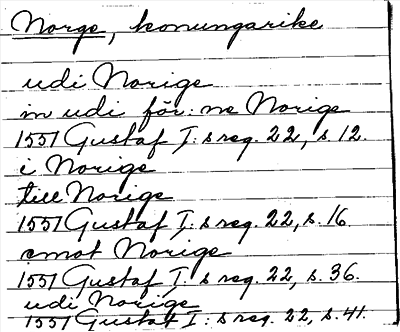 Norge, konungarike
udi Norige
in udi för:ne Norige
1551 Gustaf I:s reg. 22, s. 12.
i Norige
till Norige
1551 Gustaf I:s reg. 22, s. 16.
emot Norige
1551 Gustaf I:s reg. 22, s. 36.
udi Norige
1551 Gustaf I:s reg. 22, s. 41.